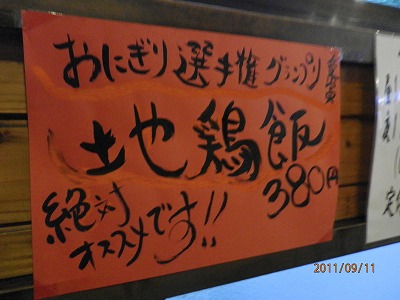 おにぎり選手権グランプリ
土也鶏飯
380円
絶対
オススメです!!
2011/09/11